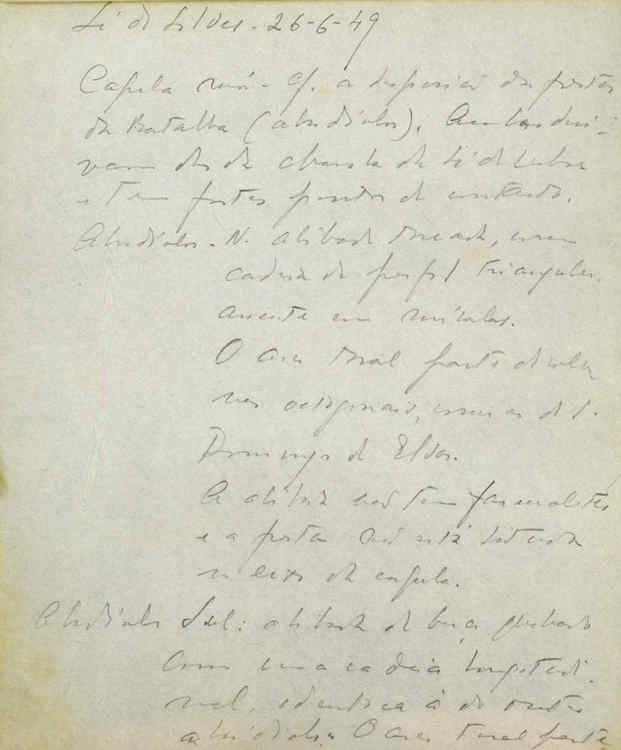 Sé de Silves - 26-6-49
Capela mór - Cf. a disposição das frestas
da Batalha (absidíolos). Ambas deri-
vam da da charola da Sé de Lisboa
e tem fortes pontos de contacto.
Absidíolos - N. abóbada
cadeia de perfil triangular,
assente em mísulas.
O arco toral parte de colu
nas octogonais, como as de S.
Domingos de Elvas.
A abóbada não tem formaletes
e a porta não está situada
no eixo da capela.
Absidíolo Sul: abóbada de berço quebrado
com uma cadeia longitudi-
nal, idêntica à do outro
absidíolo. O arco toral parte